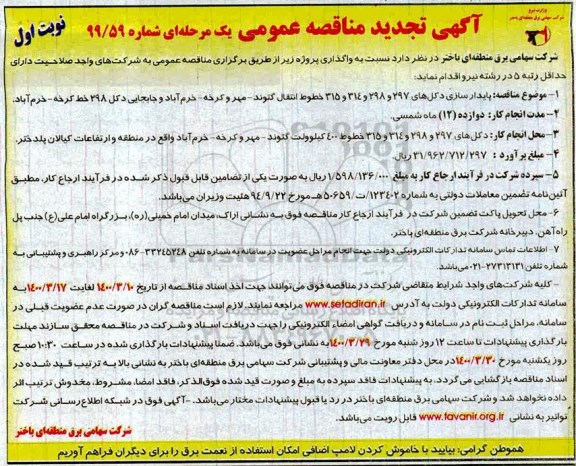 وزارت نیرو
شرکت سهامی برق منطقه‌ای باختر
آگهی تجدید مناقصه عمومی یک مرحله‌ای شماره ۹۹/۵۹
نوبت اول
شرکت سهامی برق منطقه‌ای باختر در نظر دارد نسبت به واگذاری پروژه زیر از طریق برگزاری مناقصه عمومی به شرکت‌های واجد صلاحیت دارای
حداقل رتبه ۵ در رشته نیرو اقدام نماید:
۱- موضوع مناقصه: پایدارسازی دکل‌های ۲۹۷ و ۲۹۸ و ۳۱۴ و ۳۱۵ خطوط انتقال گتوند - مهر و کرخه - خرم‌آباد و جابجایی دکل ۲۹۸ خط کرخه - خرم‌آباد.
۲- مدت انجام کار: دوازده (۱۲) ماه شمسی.
۳- محل انجام کار: دکل‌های ۲۹۷ و ۲۹۸ و ۳۱۴ و ۳۱۵ خطوط ۴۰۰ کیلوولت گتوند - مهر و کرخه - خرم‌آباد واقع در منطقه و ارتفاعات کیالان پلدختر.
۴- مبلغ برآورد : ۳۱/۹۶۲/۷۱۲/۲۹۷ ریال.
۵- سپرده شرکت در فرآیند ارجاع کار به مبلغ ۱/۵۹۸/۱۳۶/۰۰۰ ریال به صورت یکی از تضامین قابل قبول ذکر شده در فرآیند ارجاع کار، مطابق
آئین‌نامه تضمین معاملات دولتی به شماره ۱۲۳۴۰۲/ت ۵۰۶۵۹هـ مورخ ۹۴/۹/۲۲ هئیت وزیران می‌باشد.
۶- محل تحویل پاکت تضمین شرکت در فرآیند ارجاع کار مناقصه فوق به نشانی اراک، میدان امام خمینی (ره)، بزرگراه امام علی(ع) جنب پل
راه‌آهن، دبیرخانه شرکت برق منطقه‌ای باختر.
۷- اطلاعات تماس سامانه تدارکات الکترونیکی دولت جهت انجام مراحل عضویت در سامانه به شماره تلفن ۳۳۲۴۵۲۴۸-۰۸۶ و مرکز راهبری و پشتیبانی به
شماره تلفن ۲۷۳۱۳۱۳۱-۰۲۱ می‌باشد.
- کلیه شرکت‌های واجد شرایط متقاضی شرکت در مناقصه فوق می‌توانند جهت اخذ اسناد مناقصه از تاریخ ۱۴۰۰/۳/۱۰ لغایت ۱۴۰۰/۳/۱۷ به
سامانه تدارکات الکترونیکی دولت به آدرس www.setadiran.ir مراجعه نمایند. لازم است مناقصه گران در صورت عدم عضویت قبلی در
سامانه، مراحل ثبت نام در سامانه و دریافت گواهی امضاء الکترونیکی را جهت دریافت اسناد و شرکت در مناقصه محقق سازند مهلت
بارگذاری پیشنهادات تا ساعت ۱۲ روز شنبه مورخ ۱۴۰۰/۳/۲۹ به نشانی فوق می‌باشد. ضمناً پیشنهادات بارگذاری شده در ساعت ۱۰:۳۰ صبح
روز یکشنبه مورخ ۱۴۰۰/۳/۳۰ در محل دفتر معاونت مالی و پشتیبانی شرکت سهامی برق منطقه‌ای باختر به نشانی بالا به ترتیب قید شده در
اسناد مناقصه بازگشایی می گردد. به پیشنهادات فاقد سپرده به مبلغ و صورت قید شده فوق‌الذکر، فاقد امضا، مشروط، مخدوش ترتیب اثر
داده نخواهد شد و شرکت سهامی برق منطقه‌ای باختر در رد یا قبول پیشنهادات مختار می‌باشد. -آگهی فوق در شبکه اطلاع‌رسانی شرکت
توانیر به نشانی www.tavanir.org.ir قابل رویت می‌باشد.
شرکت سهامی برق منطقه‌ای باختر
هموطن گرامی: بیایید با خاموش کردن لامپ اضافی امکان استفاده از نعمت برق را برای دیگران فراهم آوریم